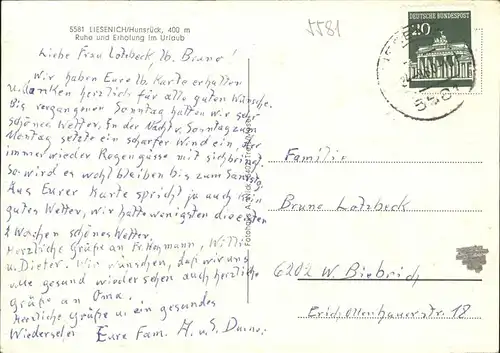 5581 LIESENICH/Hunsrück, 400 m
Ruhe und Erholung im Urlaub
5581
20
DEUTSCHE BUNDESPOST
5581
Liebe Frau Lotzbeck, lb. Bruno!
Wir haben Eure lb. Karte erhalten
u. danken herzlich für alle guten Wünsche.
Bis vergangenen Sonntag hatten wir sehr
schönes Wetter. In der Nacht v. Sonntag zum
Montag setzte ein scharfer Wind ein, der
immer wieder Regengüsse mit sich bringt.
So wird es wohl bleiben bis zum Samstag.
Aus Eurer Karte spricht ja auch kein
gutes Wetter, wir hatten wenigstens die ersten
2 Wochen schönes Wetter.
Herzliche Grüße an Fr. Heymann, Willi
u. Dieter. Wir wünschen, daß wir uns
alle gesund wieder sehen auch herzliche
Grüße an Oma.
Herzliche Grüße u. ein gesundes
Wiedersehen Eure Fam. H. u. S.
Familie
Bruno Lotzbeck
6202 W Biebrich
Erich Ollenhauerstr. 18